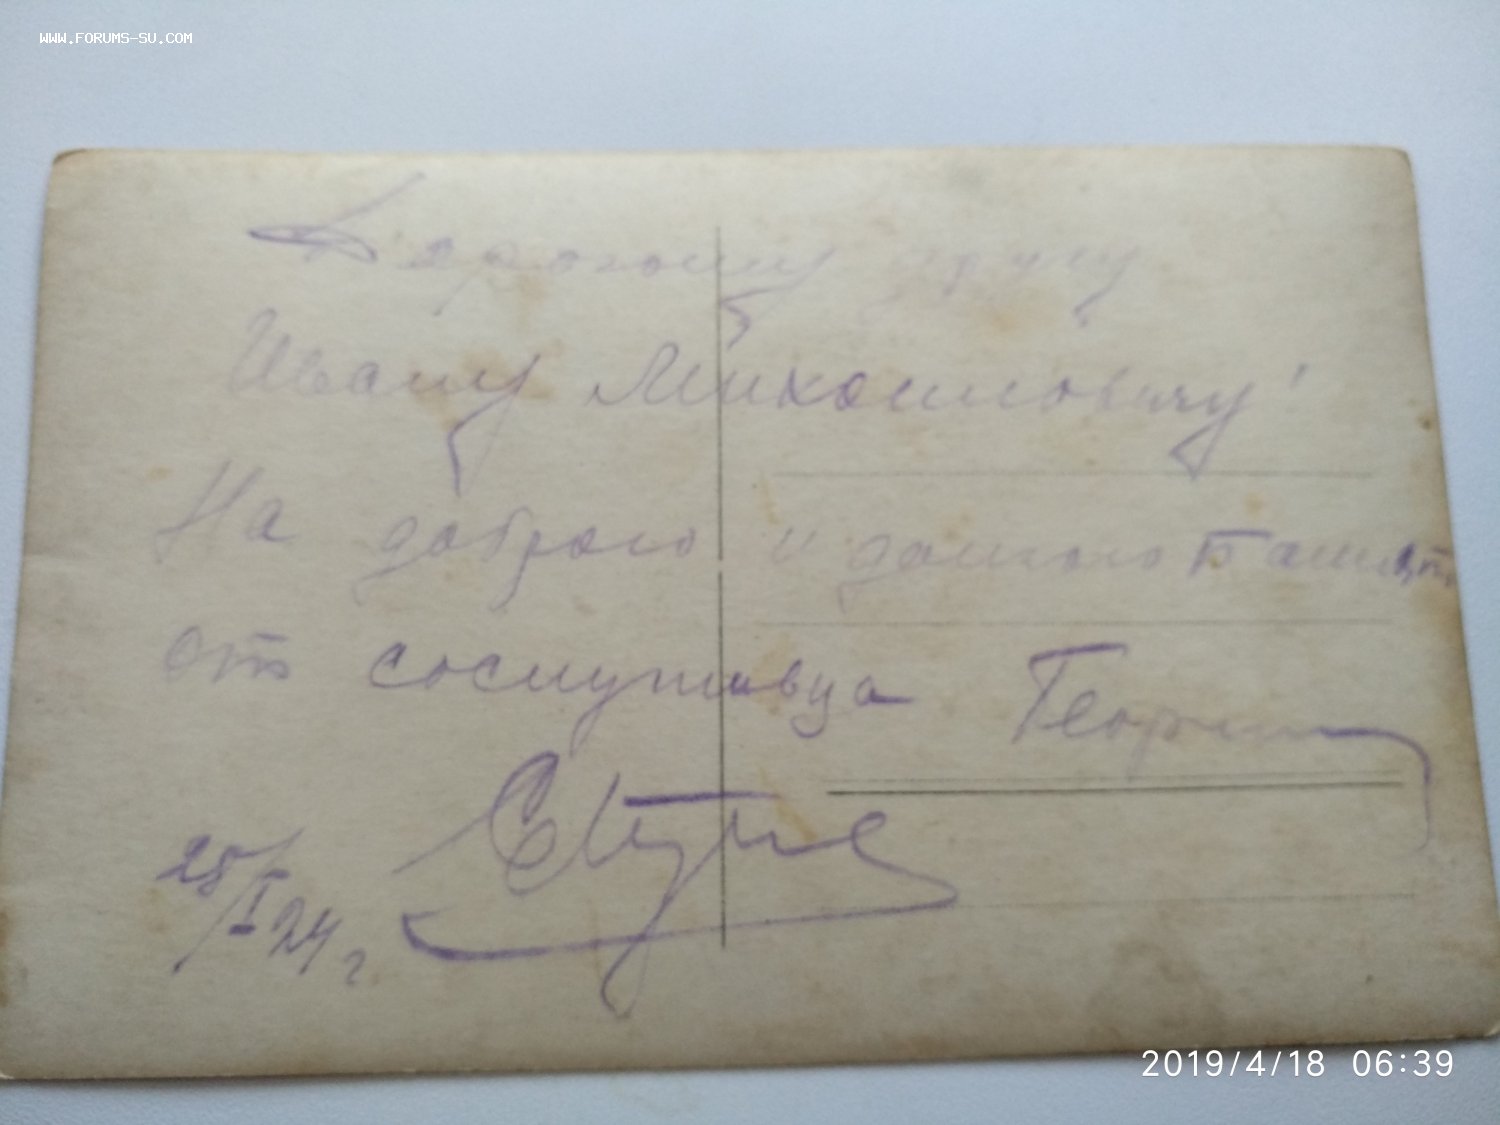 WWW.FORUMS-SU.COM
Дорогому другу
Ивану Михаиловичу!
На доброго и долгого
от сослуживца Георгия
25/I 24 г
2019/4/18 06:39